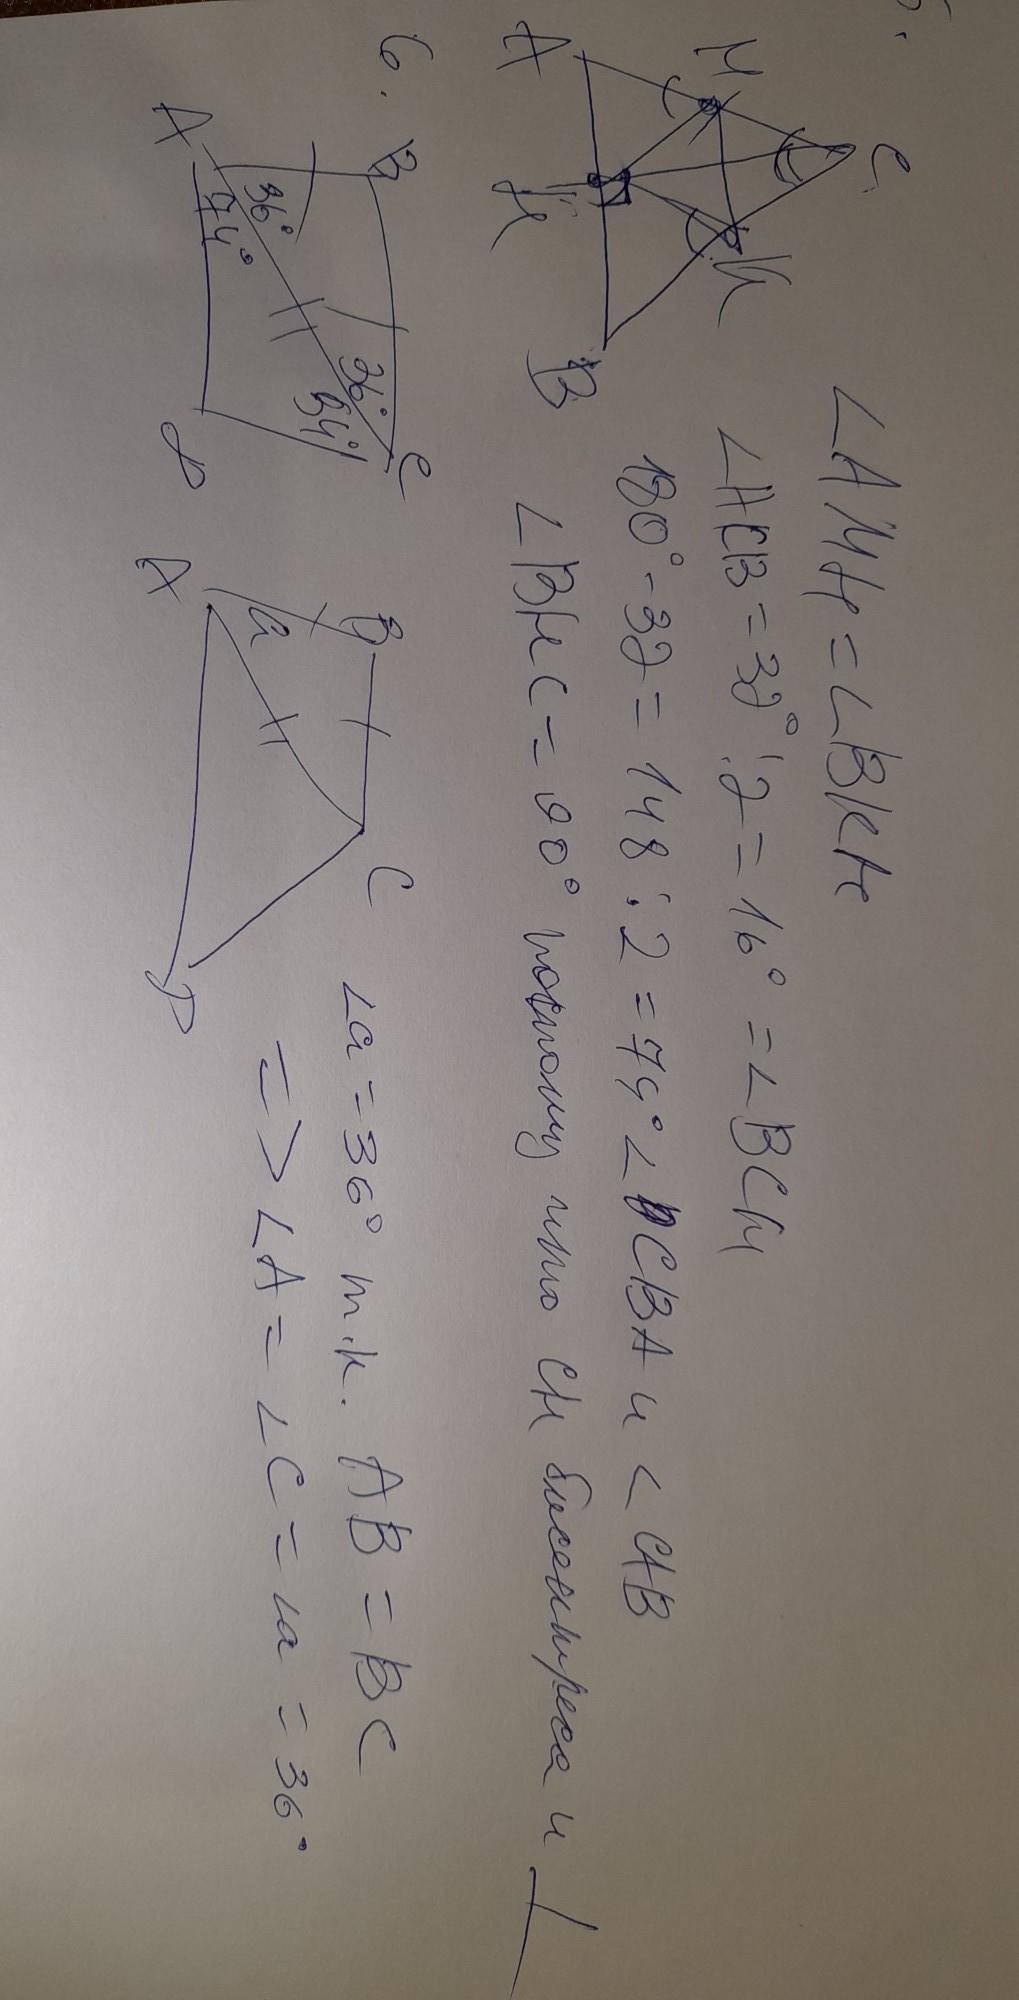 5.
C
M
K
A
H
B
∠AMH = ∠BKH
∠ACB = 32° : 2 = 16° = ∠BCH
180° - 32 = 148 : 2 = 74° ∠CBA и < CAB
∠BHC = 90° потому что CH биссектриса и ⊥
6.
B
C
36°
36°
74°
34°
A
D
B
C
a
A
D
∠a = 36° т.к. AB = BC
=> ∠A = ∠C = ∠a = 36°